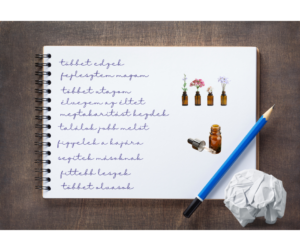 többet edzek
fejlesztem magam
többet utazom
élvezem az életet
megtakarítást kezdek
találok jobb melót
figyelek a hajára
segítek másoknak
fittebb leszek
többet olvasok